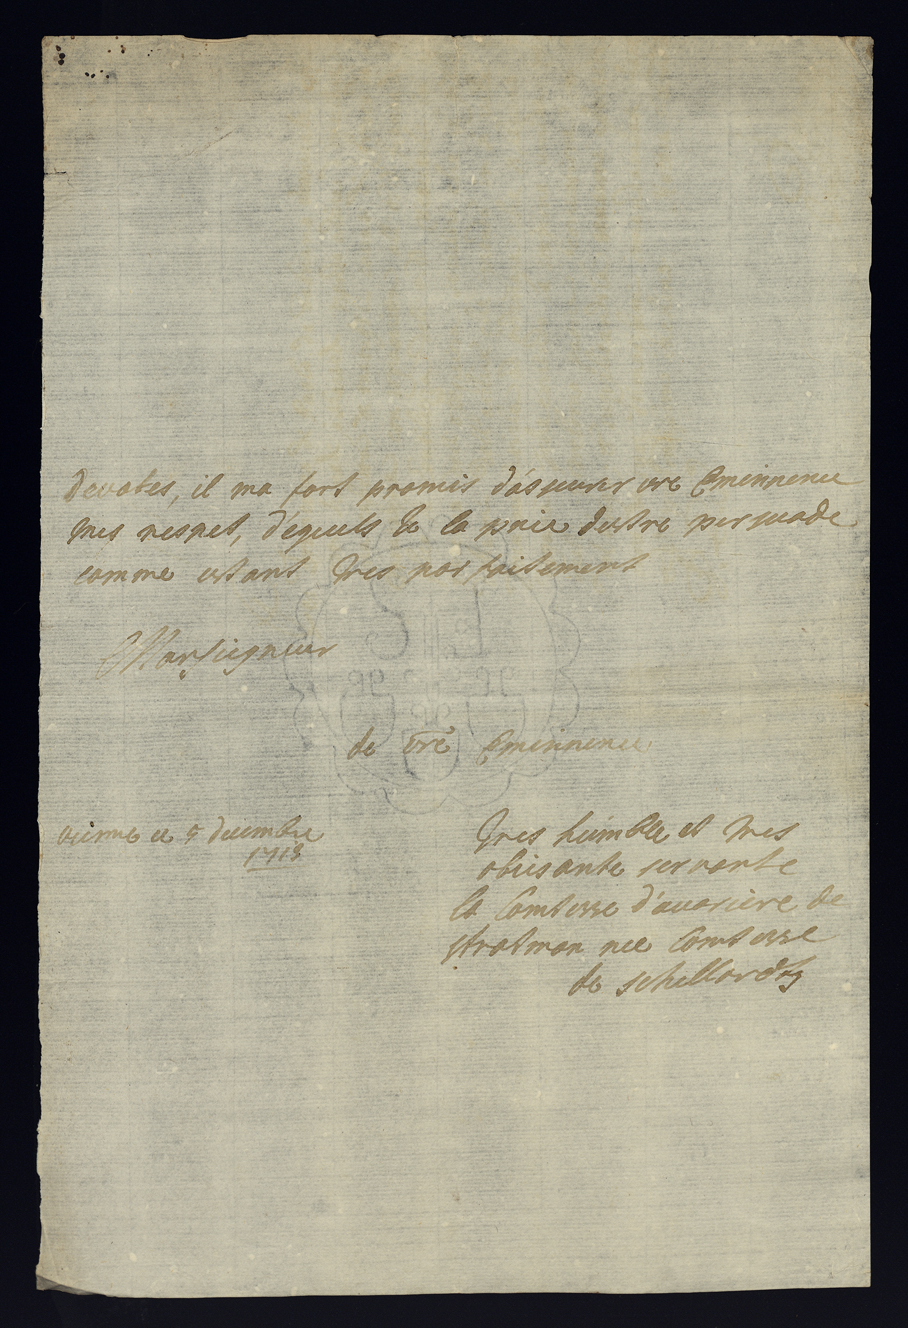 devotes, il ma fort promis d'asseurer vre Eminnence
mes respet, d'equels Je la prie d'estre persuade
comme estant tres parfaitement
Monseigneur
de vre Eminnence
vienne ce 5 decembre
1718
tres humble et tres
obeisante servante
la Comtesse d'avariere de
stratman nee Comtesse
de schellard